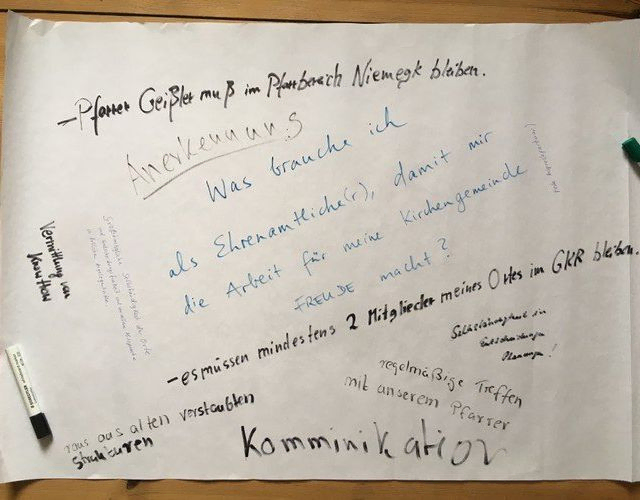 - Pfarrer Geißler muß im Pfarrbereich Niemegk bleiben.
Anerkennung
Was brauche ich
als Ehrenamtliche(r), damit mir
die Arbeit für meine Kirchengemeinde
FREUDE macht?
Vermittlung von
Know How
- es müssen mindestens 2 Mitglieder meines Ortes im GKR bleiben.
Selbständigkeit in
Planungen!
regelmäßige Treffen
mit unserem Pfarrer
raus aus alten verstaubten
Strukturen
Komminikation